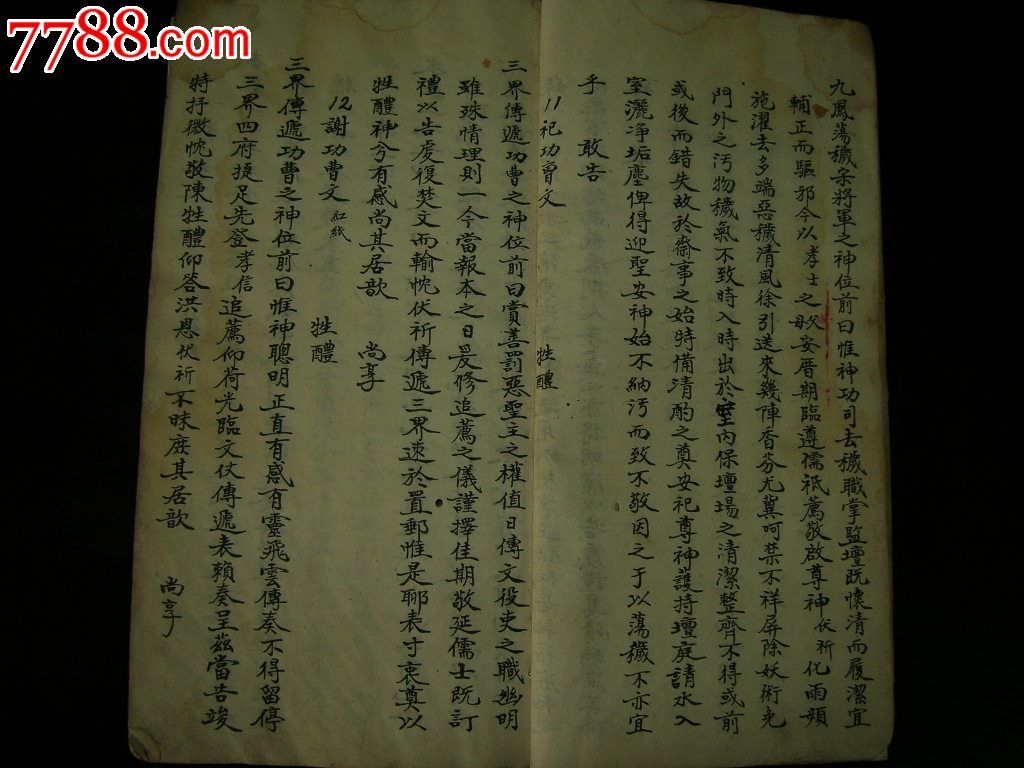 7788.com
九鳳蕩穢宋將軍之神位前曰惟神功司去穢職掌監壇既懷清而履潔宜
輔正而驅邪今以孝士之父母安厝期臨遵儒祇薦敬啟尊神伏祈化雨頻
施濯去多端惡穢清風徐引送來幾陣香芬尤冀呵禁不祥屏除妖術免
門外之汚物穢氣不致時入時出於室內保壇場之清潔整齊不得或前
或後而錯失故於齋事之始時備清酌之奠安祀尊神護持壇庭請水入
室灑凈垢塵俾得迎聖安神始不納汚而致不敬因之于以蕩穢不亦宜
乎 敢告
11祀功曹文 牲醴
三界傳遞功曹之神位前曰賞善罰惡聖主之權值日傳文役吏之職幽明
雖殊情理則一今當報本之日爰修追薦之儀謹擇佳期敬延儒士既訂
禮以告虔復焚文而輸忱伏祈傳遞三界速於置郵惟是聊表寸衷奠以
牲醴神今有感尚其居歆 尚享
12謝功曹文 紅紙 牲醴
三界傳遞功曹之神位前曰惟神聰明正直有感有靈飛雲傳奏不得留停
三界四府捷足先登孝信 追薦仰荷光臨文仗傳遞表賴奏呈茲當告竣
特抒微忱敬陳牲醴仰答洪恩伏祈不昧庶其居歆 尚享